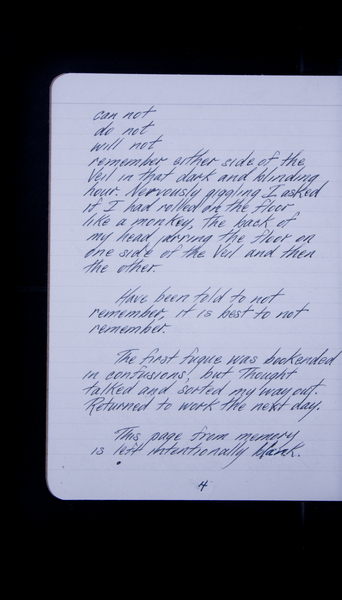 can not
do not
will not
remember either side of the
Veil in that dark and blinding
hour. Nervously giggling I asked
if I had rolled on the floor
like a monkey, the back of
my head jarring the floor on
one side of the Veil and then
the other.
Have been told to not
remember, it is best to not
remember.
The first fugue was bookended
in confusions, but Thought
talked and sorted my way out.
Returned to work the next day.
This page from memory
is left intentionally blank.
4